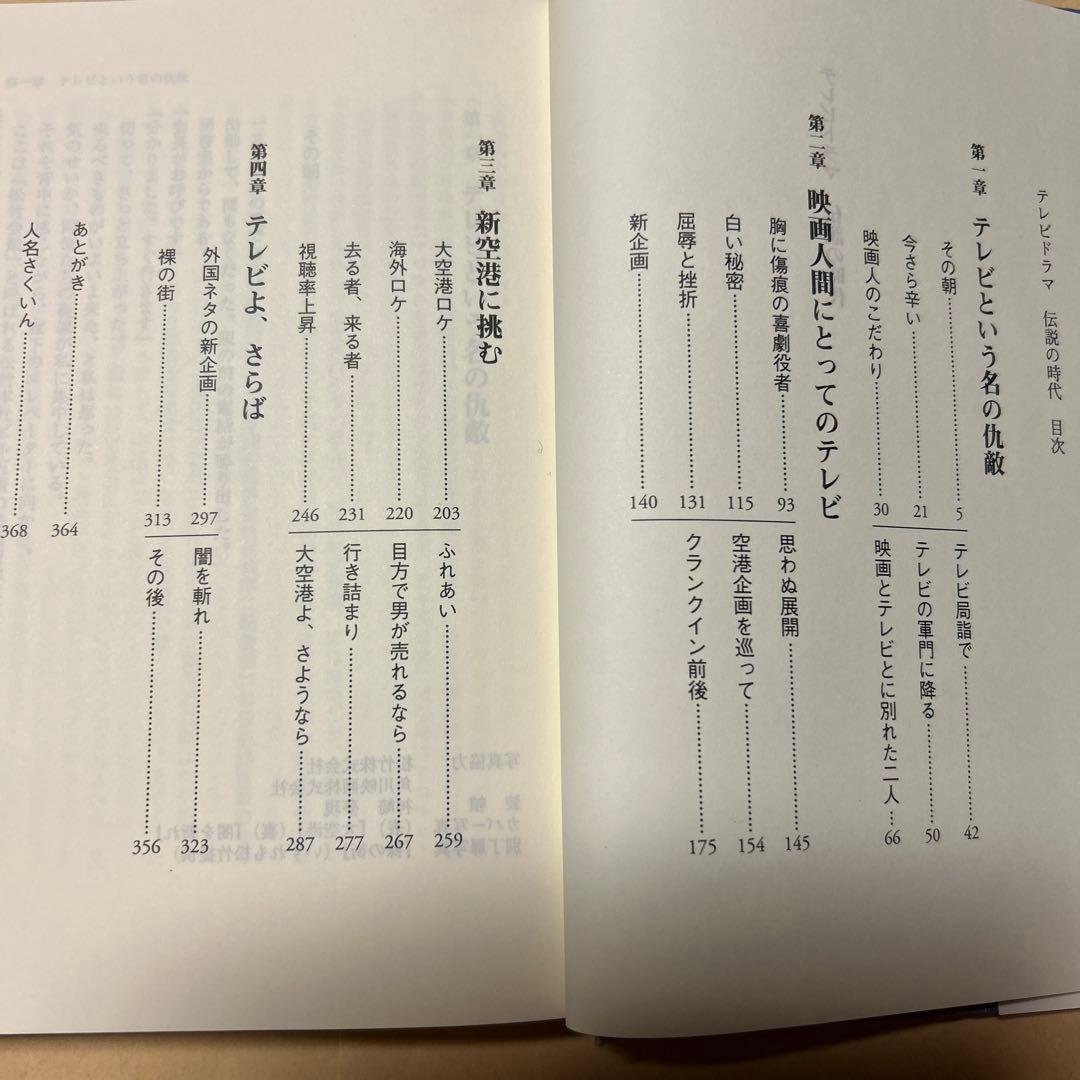 テレビドラマ 伝説の時代 目次
第一章 テレビという名の仇敵
その朝 5
今さら辛い 21
映画人のこだわり 30
テレビ局詣で 42
テレビの軍門に降る 50
映画とテレビとに別れた二人 66
第二章 映画人間にとってのテレビ
胸に傷痕の喜劇役者 93
白い秘密 115
屈辱と挫折 131
新企画 140
思わぬ展開 145
空港企画を巡って 154
クランクイン前後 175
第三章 新空港に挑む
大空港ロケ 203
海外ロケ 220
去る者、来る者 231
視聴率上昇 246
ふれあい 259
目方で男が売れるなら 267
行き詰まり 277
大空港よ、さようなら 287
第四章 テレビよ、さらば
外国ネタの新企画 297
裸の街 313
闇を斬れ 323
その後 356
あとがき 364
人名さくいん 368